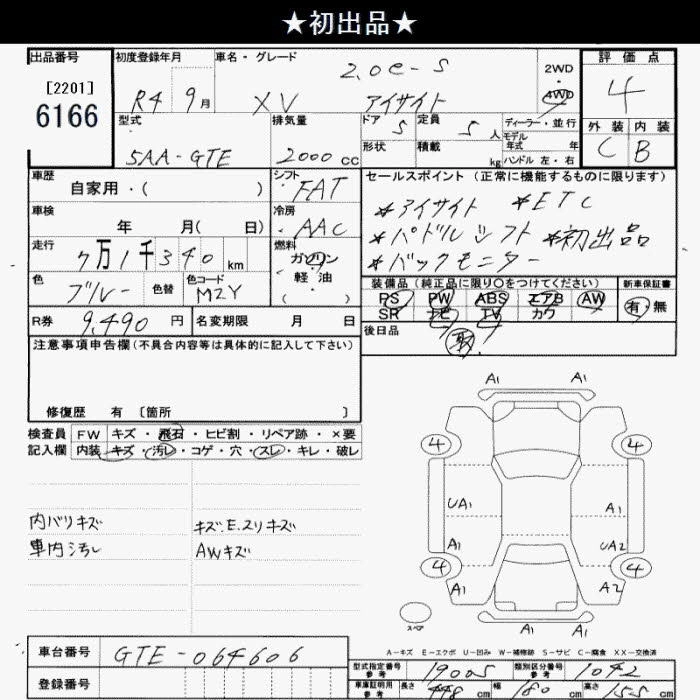 ★初出品★
出品番号 初度登録年月 車名・グレード 評価点
[2201]
6166
R4 9月 XV 2.0e-S アイサイト
2WD
・
4WD
4
型式 排気量 ドア 定員 ディーラー・並行 外装 内装
5AA-GTE 2000cc 5 5人 モデル年式 年 C B
形状 積載 kg ハンドル 左・右
車歴 自家用・( ) シフト FAT セールスポイント(正常に機能するものに限ります)
*アイサイト *ETC
車検 年 月( 日) 冷房 AAC
*パドルシフト *初出品
走行 7万1千340km 燃料 ガソリン
・
軽油
( )
*バックモニター
色 ブルー 色替 色コード M2Y
装備品(純正品に限り○をつけてください) 新車保証書
PS PW ABS エアB AW 有・無
SR ナビ TV カワ
R券 9,490円 名変期限 月 日 後日品
取
注意事項申告欄(不具合内容等は具体的に記入して下さい)
修復歴 有 〔箇所 〕
検査員 FW キズ・飛石・ヒビ割・リペア跡・×要
記入欄 内装 キズ・汚レ・コゲ・穴・スレ・キレ・破レ
内バリキズ キズ.E.スリキズ
車内汚レ AWキズ
A1 A1
4 4
UA1 A1
A1 UA2
4 4
A1 A2
A1 A1
スペア
A-キズ E-エクボ U-凹み W-補修跡 S-サビ C-腐食 XX-交換済
車台番号 GTE-064606
型式指定番号 参考 19005 類別区分番号 参考 1042
登録番号
車庫証明用 参考 長さ 448cm 幅 180cm 高さ 155cm